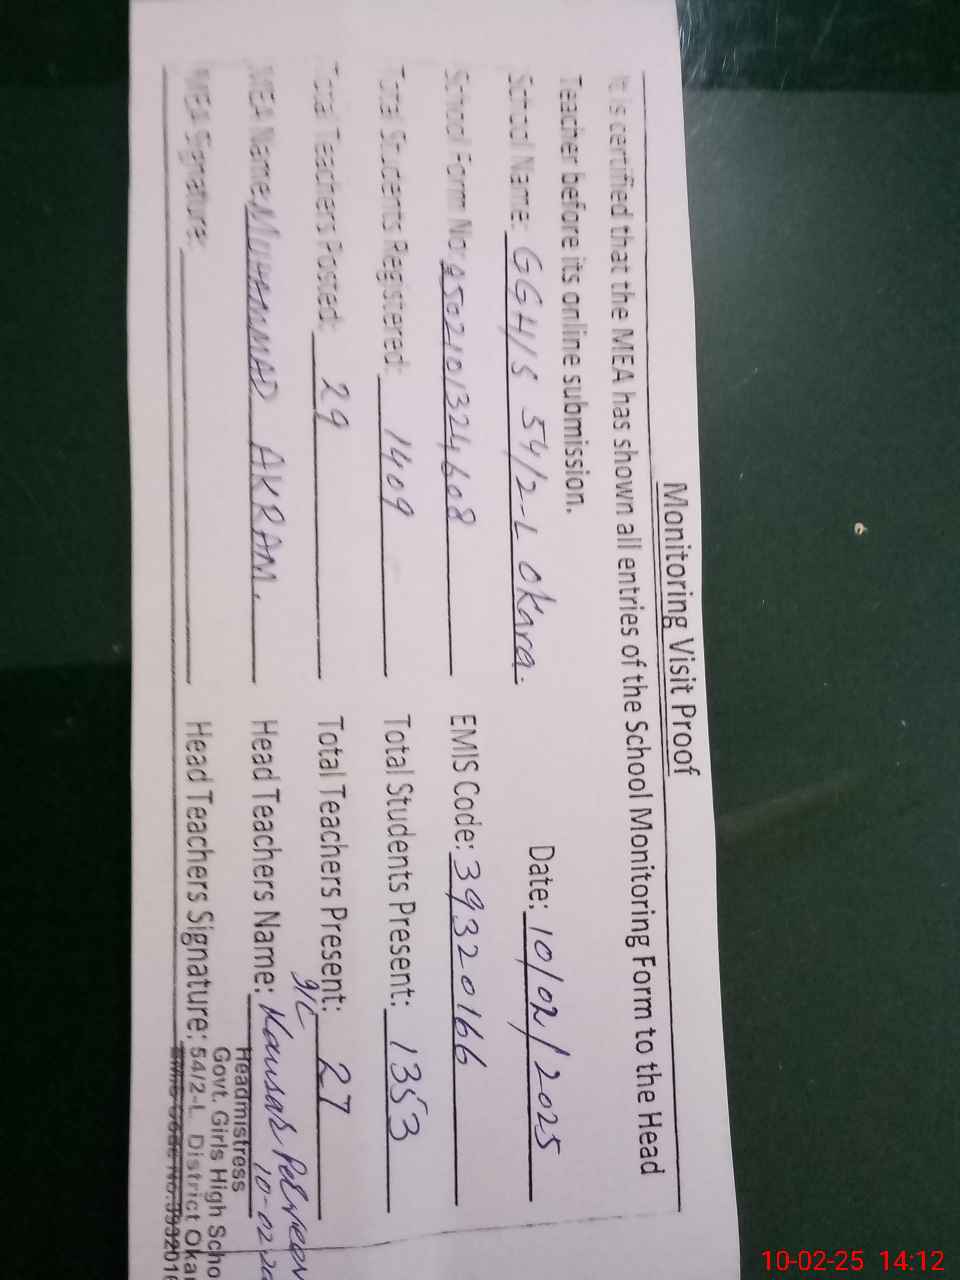 Monitoring Visit Proof
It is certified that the MEA has shown all entries of the School Monitoring Form to the Head
Teacher before its online submission.
Date: 10/02/2025
School Name: GGH/S 54/2-L Okara.
School Form No: 2502101324608
EMIS Code: 39320166
Total Students Registered: 1409
Total Students Present: 1353
Total Teachers Posted: 29
Total Teachers Present: 27
MEA Name: MUHAMMAD AKRAM.
Head Teachers Name: I/C Kausar Perveen
10-02-20
MEA Signature:
Head Teachers Signature:
Headmistress
Govt. Girls High Scho
54/2-L District Okar
EMIS Code No.3932016
10-02-25 14:12